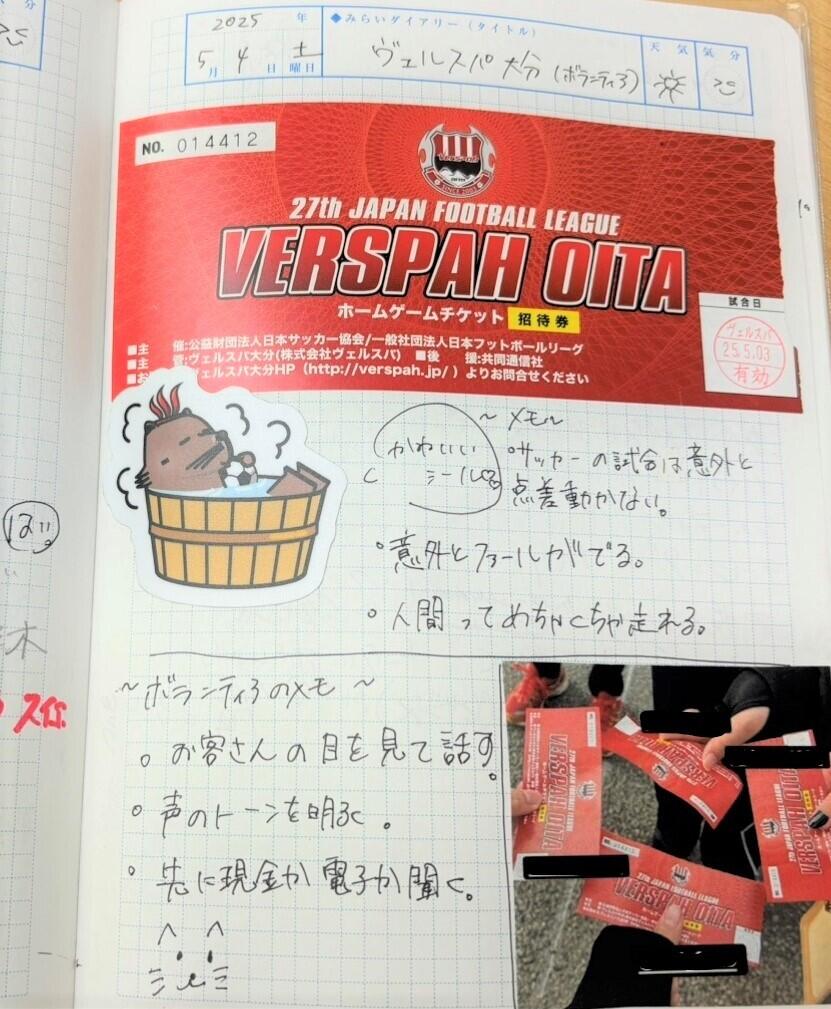 2025 年
5月 4日 土曜日
◆みらいダイアリー(タイトル)
ヴェルスパ大分(ボランティア)
天気
気分
NO. 014412
VERSPAH
OITA
SINCE 2003
27th JAPAN FOOTBALL LEAGUE
VERSPAH OITA
ホームゲームチケット 招待券
試合日
ヴェルスパ
25.5.03
有効
■主 催:公益財団法人日本サッカー協会/一般社団法人日本フットボールリーグ
■主 管:ヴェルスパ大分(株式会社ヴェルスパ) ■後 援:共同通信社
■お ヴェルスパ大分HP(http://verspah.jp/ )よりお問合せください
かわいい
シール
~メモ~
◦サッカーの試合は意外と
点差動かない。
◦意外とファールがでる。
◦人間ってめちゃくちゃ走れる。
~ボランティアのメモ~
◦お客さんの目を見て話す。
◦声のトーンを明るく。
◦先に現金か電子か聞く。
はい。
木
27th JAPAN FOOTBALL LEAGUE
VERSPAH OITA
VERSPAH OITA
27th JAPAN FOOTBALL LEAGUE
VERSPAH OITA
27th JAPAN FOOTBALL LEAGUE
VERSPAH OITA